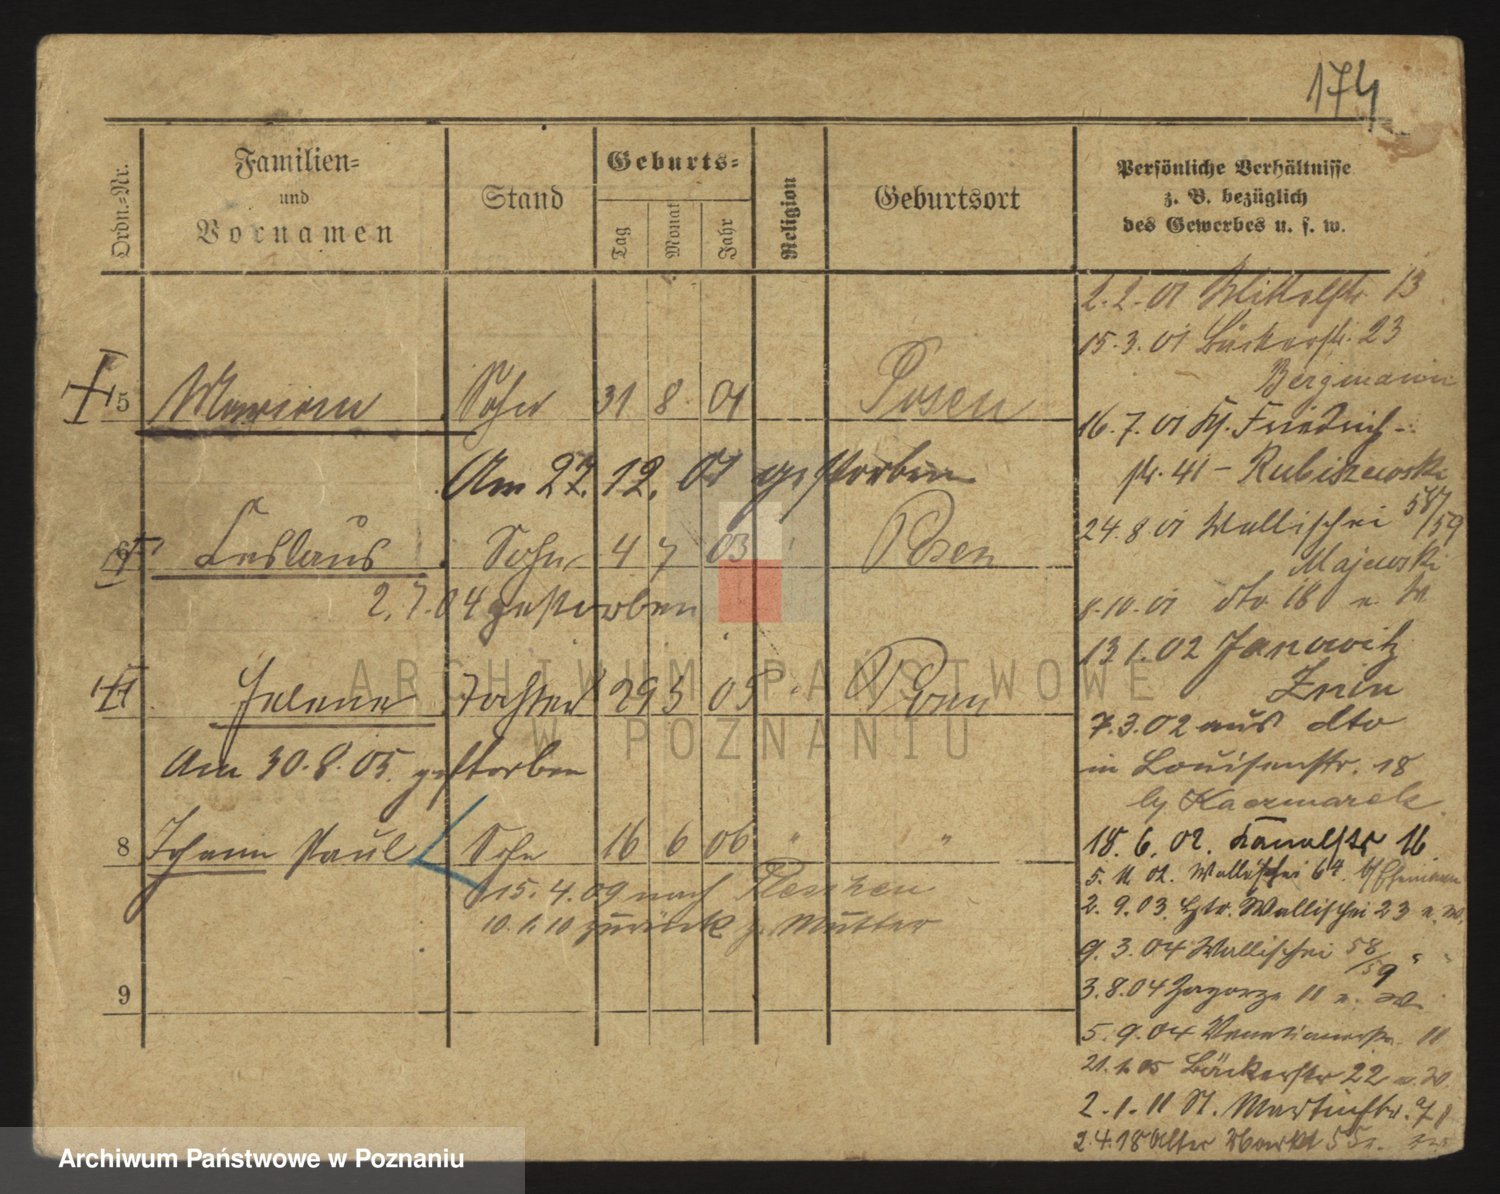 174
Ordn.-Nr.
Familien-
und
Vornamen
Stand
Geburts-
Tag
Monat
Jahr
Religion
Geburtsort
Persönliche Verhältnisse
z. B. bezüglich
des Gewerbes u. s. w.
5 Marian Sohn 31 8 01 Posen
Am 27. 12. 01 gestorben
6 Leslaus Sohn 4 7 03 Posen
2. 7. 04 gestorben
7 Helene Tochter 29 5 05 " Posen
Am 30. 8. 05. gestorben
8 Johann Paul Sohn 16 6 06 " "
15. 4. 09 nach Pleschen
10. 1. 10 zurück z. Mutter
9
2. 2. 01 Mittelstr. 13
15. 3. 01 Bäckerstr. 23
Bergmann
16. 7. 01 Kl. Friedrich-
str. 41 - Rubiszewski
24. 8. 01 Wallischei 58/59
Majewski
8. 10. 01 dto 18 u. W.
13. 1. 02 Janowitz
Znin
7. 3. 02 aus dto
in Louisenstr. 18
by Kaczmarek
18. 6. 02. Kanalstr 16
5. 11. 02. Wallischei 64.
2. 9. 03. Htr. Wallischei 23 u. W.
9. 3. 04 Wallischei 58/59 " "
3. 8. 04 Zagorze 11 u. W
5. 9. 04 Venetianerstr. 11
21. 1. 05 Bäckerstr 22 u. W.
2. 1. 11 St. Martinstr. 71
2. 4. 18 Alter Markt 55
ARCHIWUM PAŃSTWOWE
W POZNANIU
Archiwum Państwowe w Poznaniu